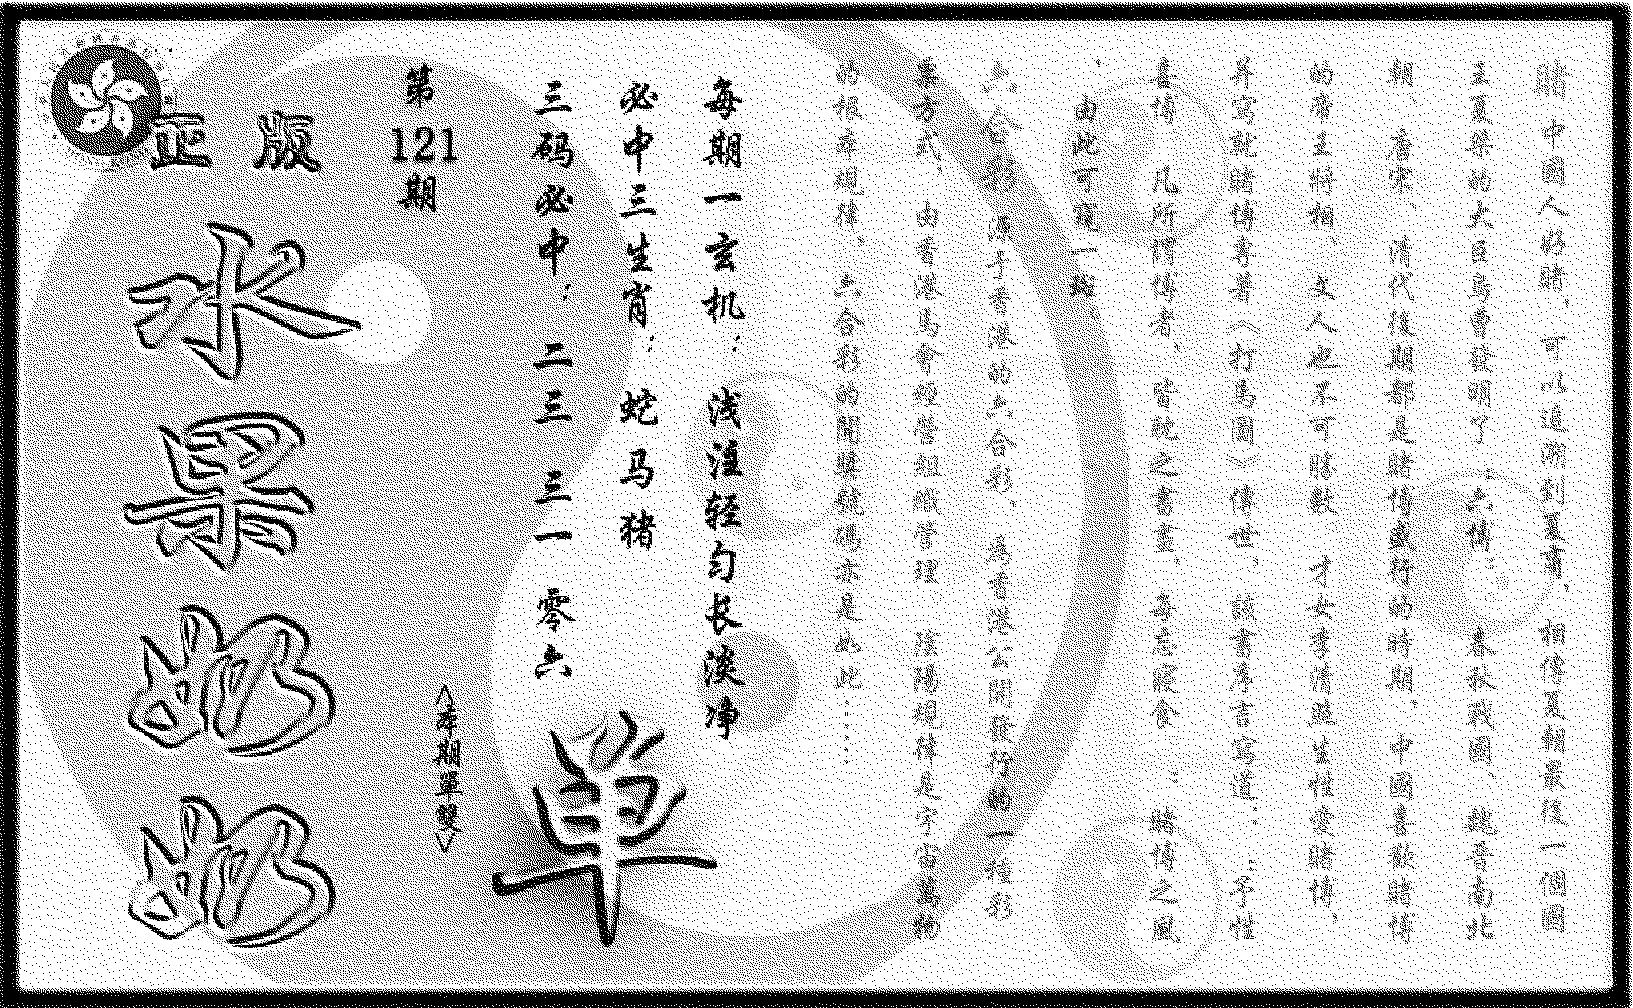 正版
水果奶奶
第121期
<本期單雙>
单
三码必中：二三 三一 零六
必中三生肖：蛇马猪
每期一玄机：浅注轻匀长淡净
的根本規律、六合彩的開獎號碼亦是如此……
要方式、由香港馬會經營組織管理 陰陽相陣是宇宙萬物
六合彩 源于香港的六合彩、是香港公開發行的一種彩
、由此可窺一斑
畫博 凡所謂博者、皆耽之書畫、每忘寢食 ：賭博之風
并寫就賭博專著《打馬圖》傳世、該書序言寫道：：予性
的帝王将相 文人也不可勝數 才女李清照生性愛賭博、
期 唐宋、清代後期都是賭博盛行的時期、中國喜歡賭博
王夏桀的大臣烏曹發明了：六博： 春秋戰國、魏晉南北
賭 中國人好賭、可以追溯到夏商、相傳夏朝最後一個國